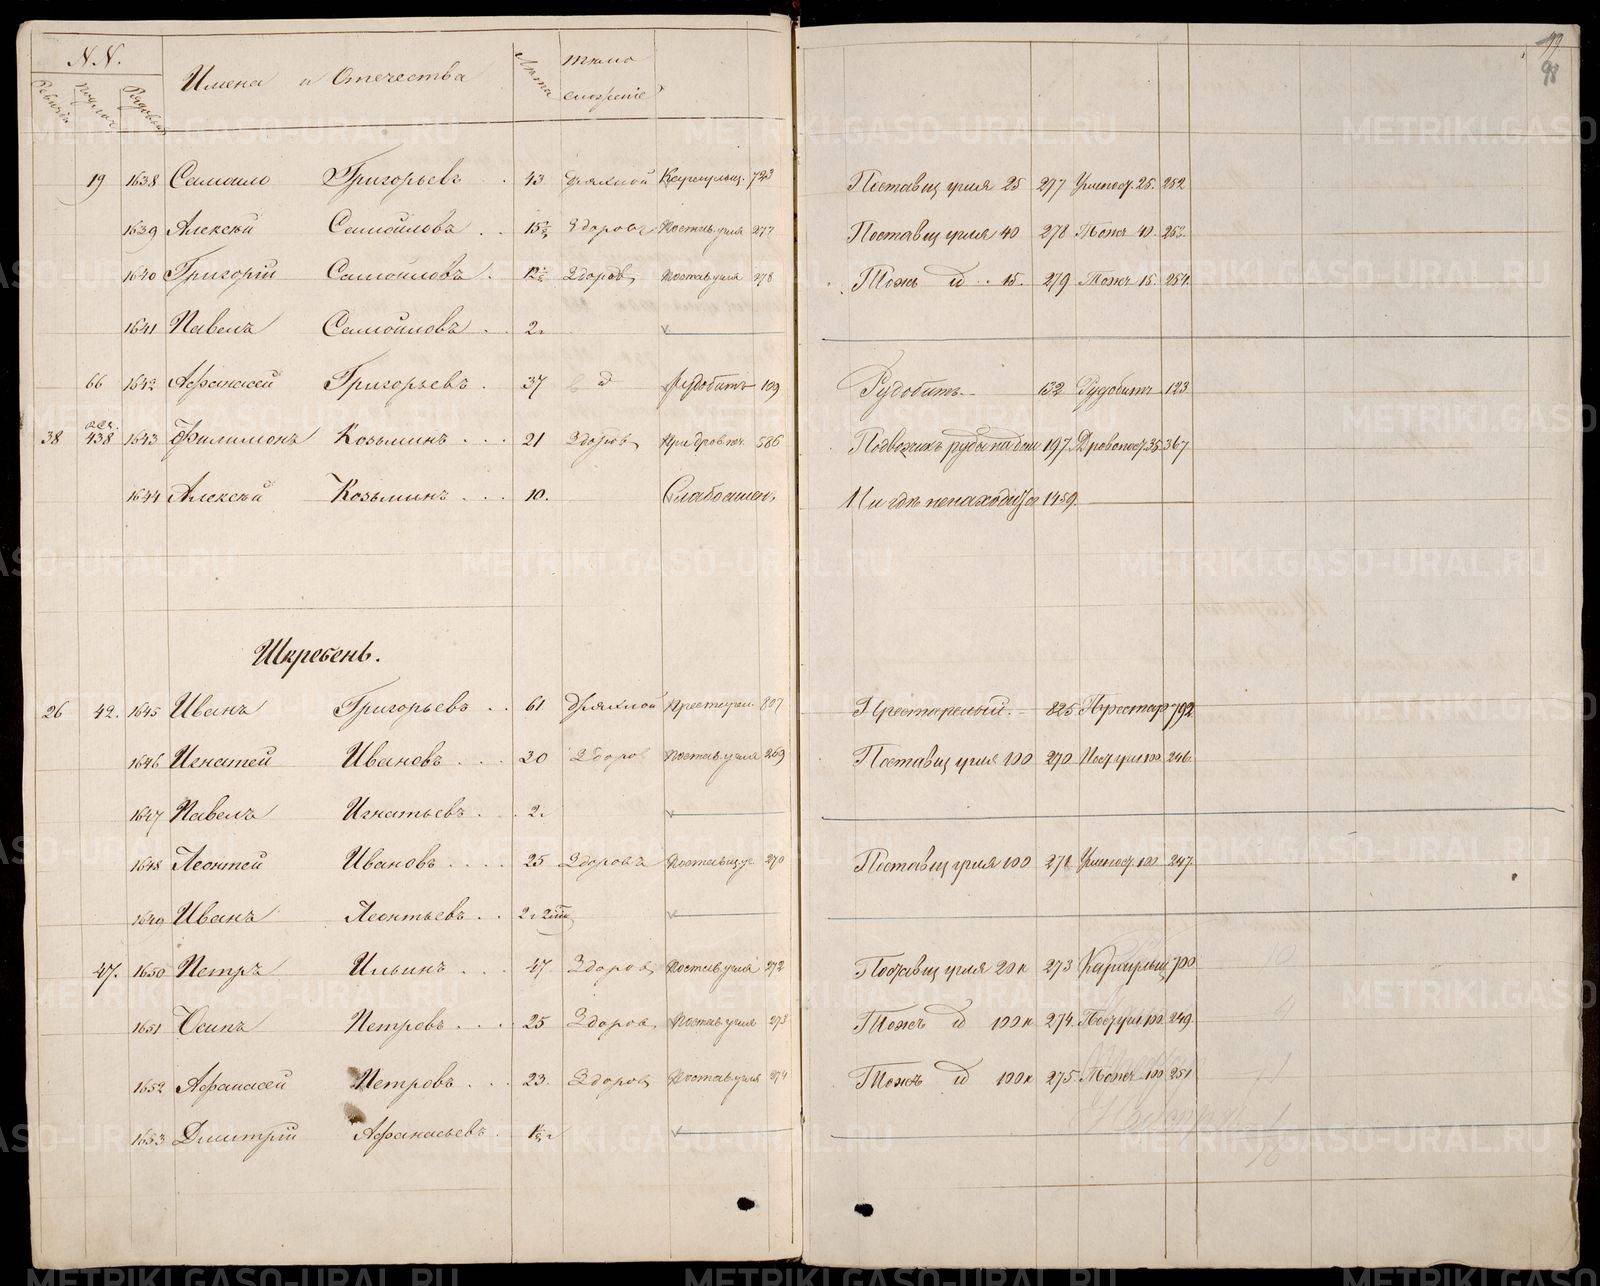 N.N.
Имена и Отечества
Лета
99
98
19 1638 Самоило Григорьевъ . 43 Дряхлой 723 Поставщ угля 25 277 25. 252
1639 Алексѣй Самойловъ . . 15½ Здоровъ Постав. угля 277 Поставщ угля 40 278 Тожъ 40. 253.
1640 Григорій Самойловъ . 12½ Здоровъ Постав угля 278 Тожъ id . . 15. 279 Тожъ 15. 254.
1641 Павелъ Самойловъ . . 2.
66 1642 Афанасей Григорьевъ . 37 id Рудобитъ 109 Рудобитъ 132 Рудобитъ 123
38 438 1643 Филимонъ Козьминъ . . . 21 Здоровъ При дров. 586 197 35 367
1644 Алексѣй Козьминъ . . . 10. Слабоаменъ Ни гдѣ ненаходится 1459.
Шкребень.
26 42. 1645 Иванъ Григорьевъ . . 61 Дряхлой 807 Престарелый. 825 Престар 792
1646 Игнатей Ивановъ . . . 30 Здоровъ Постав. угля 269 Поставщ угля 100 270 Пост угля 100. 246.
1647 Павелъ Игнатьевъ . . 2.
1648 Леонтей Ивановъ . . . . 25 Здоровъ Поставщ. уг. 270 Поставщ угля 100 271 100 247.
1649 Иванъ Леонтьевъ . .
47. 1650 Петръ Ильинъ . . . 47 Здоровъ Постав угля 272 Поставщ угля 20 к 273 700
1651 Осипъ Петровъ . . . 25 Здоровъ Постав угля 273 Тожъ id 100 к 274. Пост угля 100. 249.
1652 Афанасей Петровъ . . . 23. Здоровъ Постав угля 274 Тожъ id 100 к 275 Тожъ 100 251
1653 Дмитрій Афанасьевъ .
METRIKI.GASO-URAL.RU